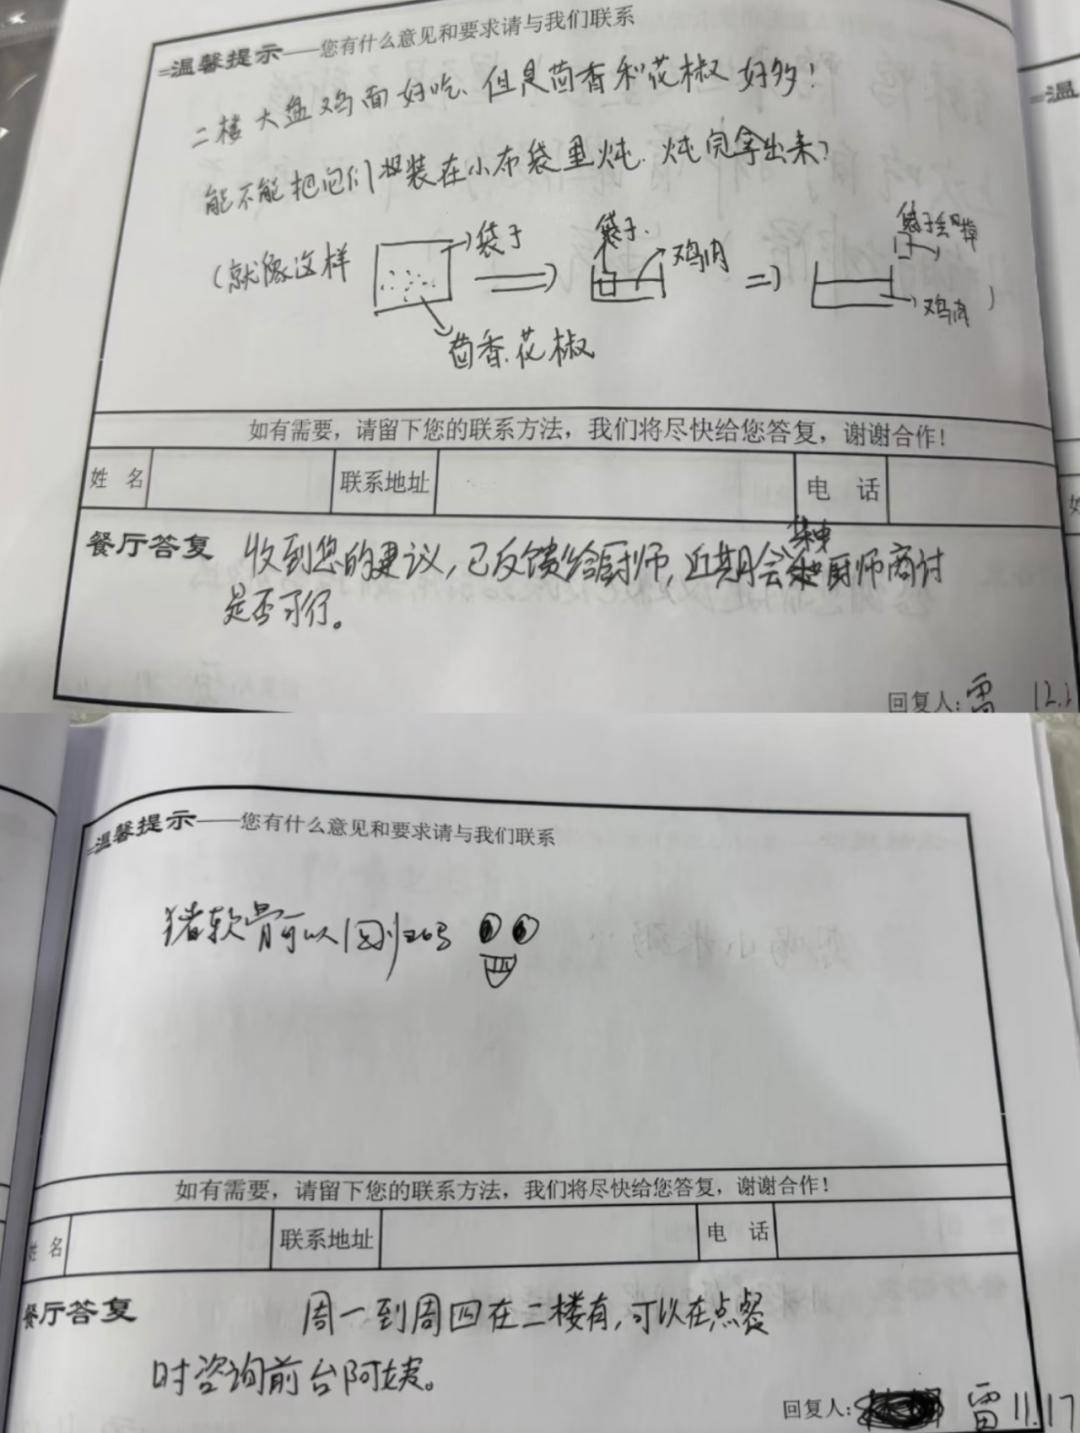 温馨提示——您有什么意见和要求请与我们联系
二楼大盘鸡面好吃、但是茴香和花椒好多!
能不能把它们装在小布袋里炖.炖完拿出来?
(就像这样
袋子
茴香.花椒
袋子.
鸡肉
袋子
鸡肉
)
如有需要，请留下您的联系方法，我们将尽快给您答复，谢谢合作!
姓 名
联系地址
电 话
餐厅答复 收到您的建议,已反馈给厨师,近期会集中和厨师商讨
是否可行。
回复人:雷 12.1
温
温馨提示——您有什么意见和要求请与我们联系
猪软骨可以回归吗
如有需要，请留下您的联系方法，我们将尽快给您答复，谢谢合作!
姓 名
联系地址
电 话
餐厅答复 周一到周四在二楼有,可以在点餐
时咨询前台阿姨。
回复人: 雷 11.17